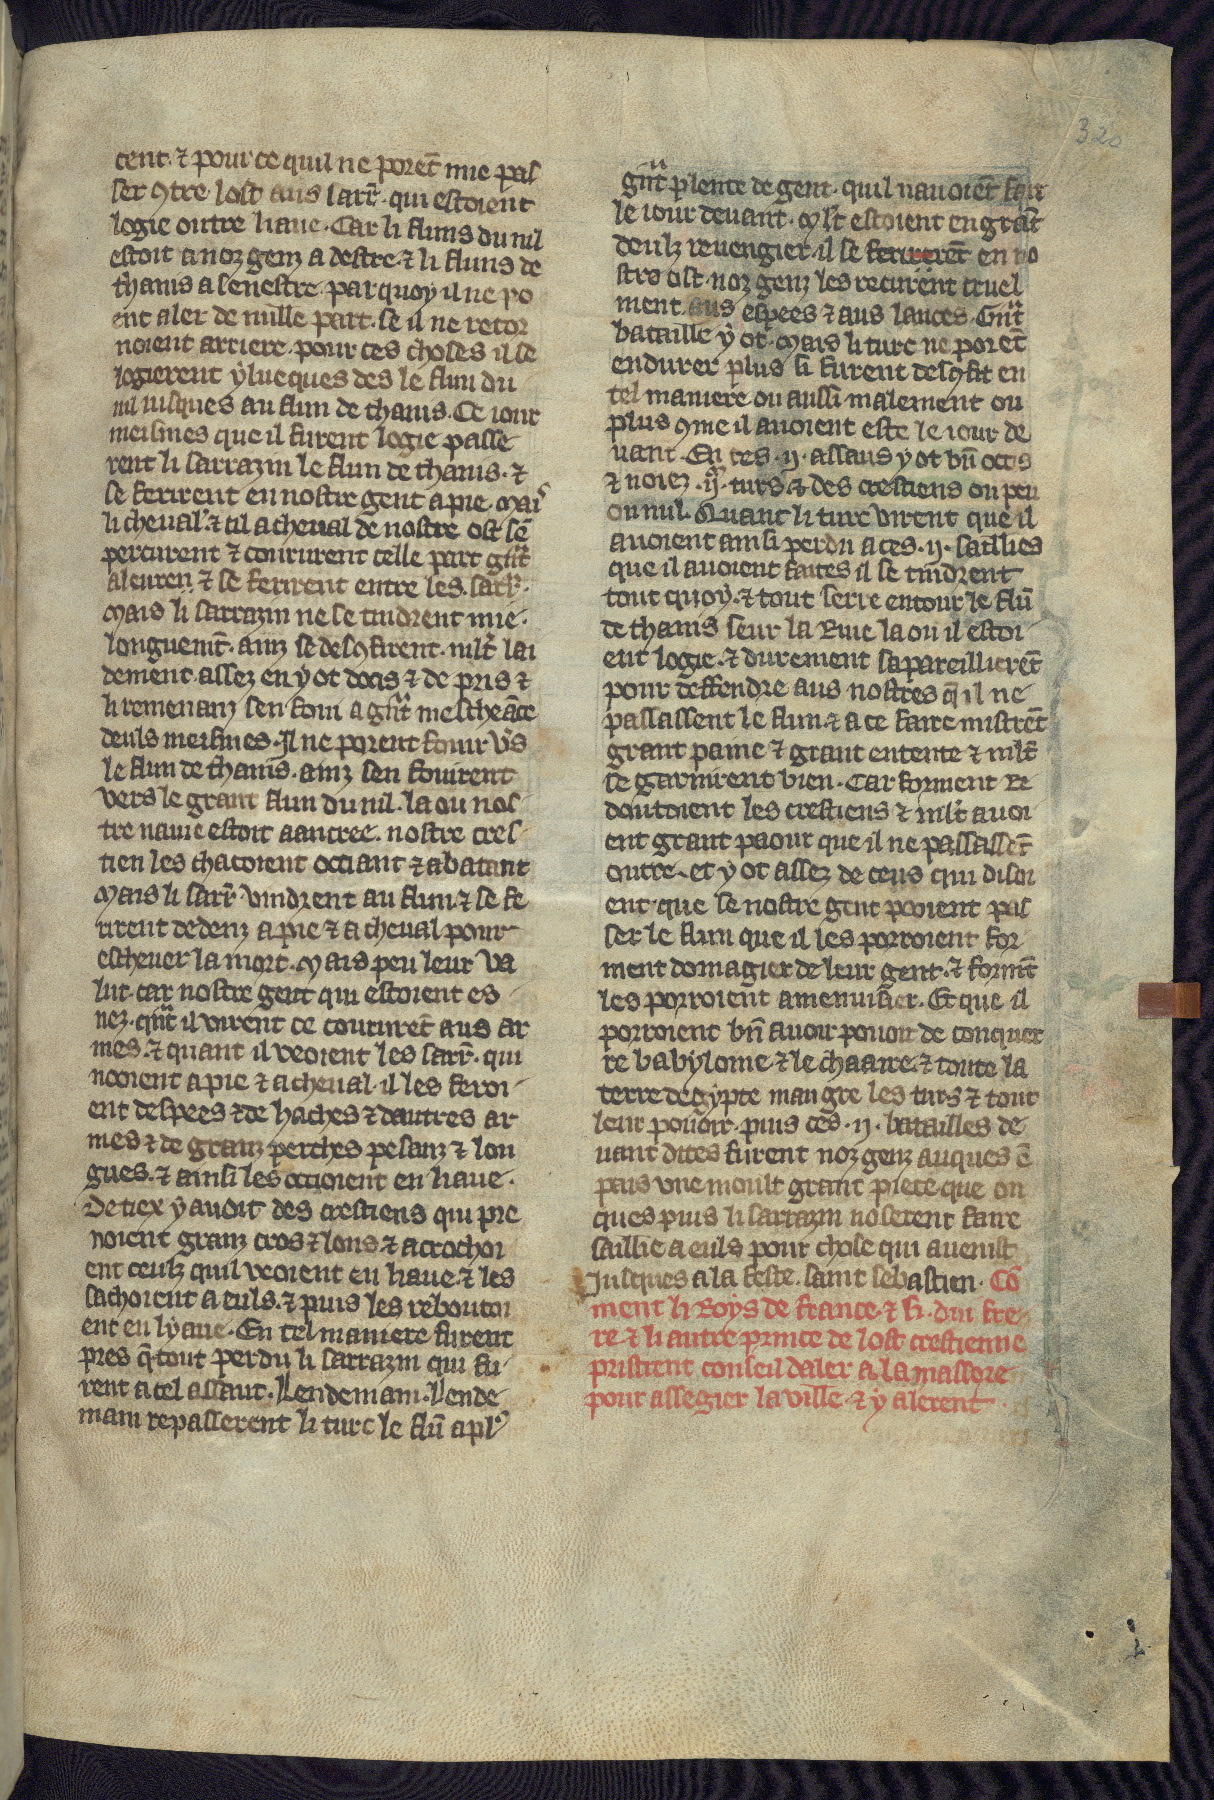 320
cent. ⁊ pour ce quil ne porēt mie pas
ser ꝯtre lost aus sarr̄. qui estoient
logie outre liaue. Car li fluns du nil
estoit a noz genz a destre. ⁊ li fluns de
thanis a senestre. par quoy il ne po
ent aler de nulle part. se il ne retor
noient arriere. pour ces choses il se
logierent ylueques des le flun du
nil iusques au flun de thanis. Ce iour
meismes que il furent logie passe
rent li sarrazin le flun de thanis. ⁊
se ferirent en nostre gent a pie. Mais
li cheual'. ⁊ cil a cheual de nostre ost sē
percurent ⁊ coururent celle part gnt
aleuren. ⁊ se ferirent entre les sarr̄.
Mais li sarrazin ne se tindrent mie
longuemt̄. ainz se desꝯfirent. mlt̄ lai
dement. assez en y ot docis ⁊ de pris ⁊
li remenanz sen foui a gnt mescheāce
deuls meismes. Il ne porent fouir v̄s
le flun de thanis. ainz sen fouirent
vers le grant flun du nil. la ou nos
tre nauie estoit aancree. nostre cres
tien les chacoient occiant ⁊ abatant
Mais li sarr̄ vindrent au flun ⁊ se fe
rirent dedenz a pie ⁊ a cheual pour
escheuer la mort. Mais peu leur va
lut. car nostre gent qui estoient es
nez. qnt il virent ce coururēt aus ar
mes. ⁊ quant il veoient les sarr̄. qui
nooient a pie ⁊ a cheual. il les feroi
ent despees ⁊ de haches ⁊ dautres ar
mes ⁊ de granz perches pesanz ⁊ lon
gues. ⁊ ainsi les occioient en liaue.
De tiex y auoit des crestiens qui pre
noient granz cros ⁊ lons ⁊ acrochoi
ent ceulz quil veoient en liaue. ⁊ les
sachoient a euls. ⁊ puis les reboutoi
ent en lyaue. En tel maniere furent
pres q̄ tout perdu li sarrazin qui fu
rent a cel assaut. Lendemain. Lende
main repasserent li turc le flū a pl9
gnt plente de gent. quil nauoiēt fait
le iour deuant. Mlt estoient en grāt
deulz reuengier. il se ferirerēt en no
stre ost. noz genz les recurent cruel
ment. aus espees ⁊ aus lances. Gnt
bataille y ot. Mais li turc ne porēt
endurer plus. si furent desꝯfit en
tel maniere ou aussi malement ou
plus ꝯme il auoient este le iour de
uant. En ces .ij. assaus y ot bn̄ occis
⁊ noiez .iij.m. turs. ⁊ des crestiens ou peu
ou nul. Quant li turc virent que il
auoient ainsi perdu a ces .ij. saillies
que il auoient faites il se tindrent
tout quoy. ⁊ tout serre entour le flū
de thanis seur la Riue la ou il estoi
ent logie. ⁊ durement sapareillierēt
pour deffendre aus nostres q̄ il ne
passassent le flun. ⁊ a ce faire mistrēt
grant paine ⁊ grant entente ⁊ mlt̄
se garnirent bien. Car forment Re
doutoient les crestiens ⁊ mlt̄ auoi
ent grant paour que il ne passassēt
outre. et y ot assez de ceus qui disoi
ent. que se nostre gent pooient pas
ser le flun que il les porroient for
ment domagier de leur gent. ⁊ formt̄
les porroient amenuisier. Et que il
porroient bn̄ auoir pouoir de conquer
re babyloine. ⁊ le chaarre. ⁊ toute la
terre degypte maugre les turs ⁊ tout
leur pouoir. puis ces .ij. batailles de
uant dites furent noz genz auques ē
pais vne moult grant piece que on
ques puis li sarrazin noserent faire
saillie a euls pour chose qui auenist
Jusques a la feste saint sebastien. Cō
ment li Roys de france. ⁊ si .diu. fre
re. ⁊ li autre prince de lost crestienne
pristrent conseil daler a la massore
pour assegier la ville. ⁊ y alerent.